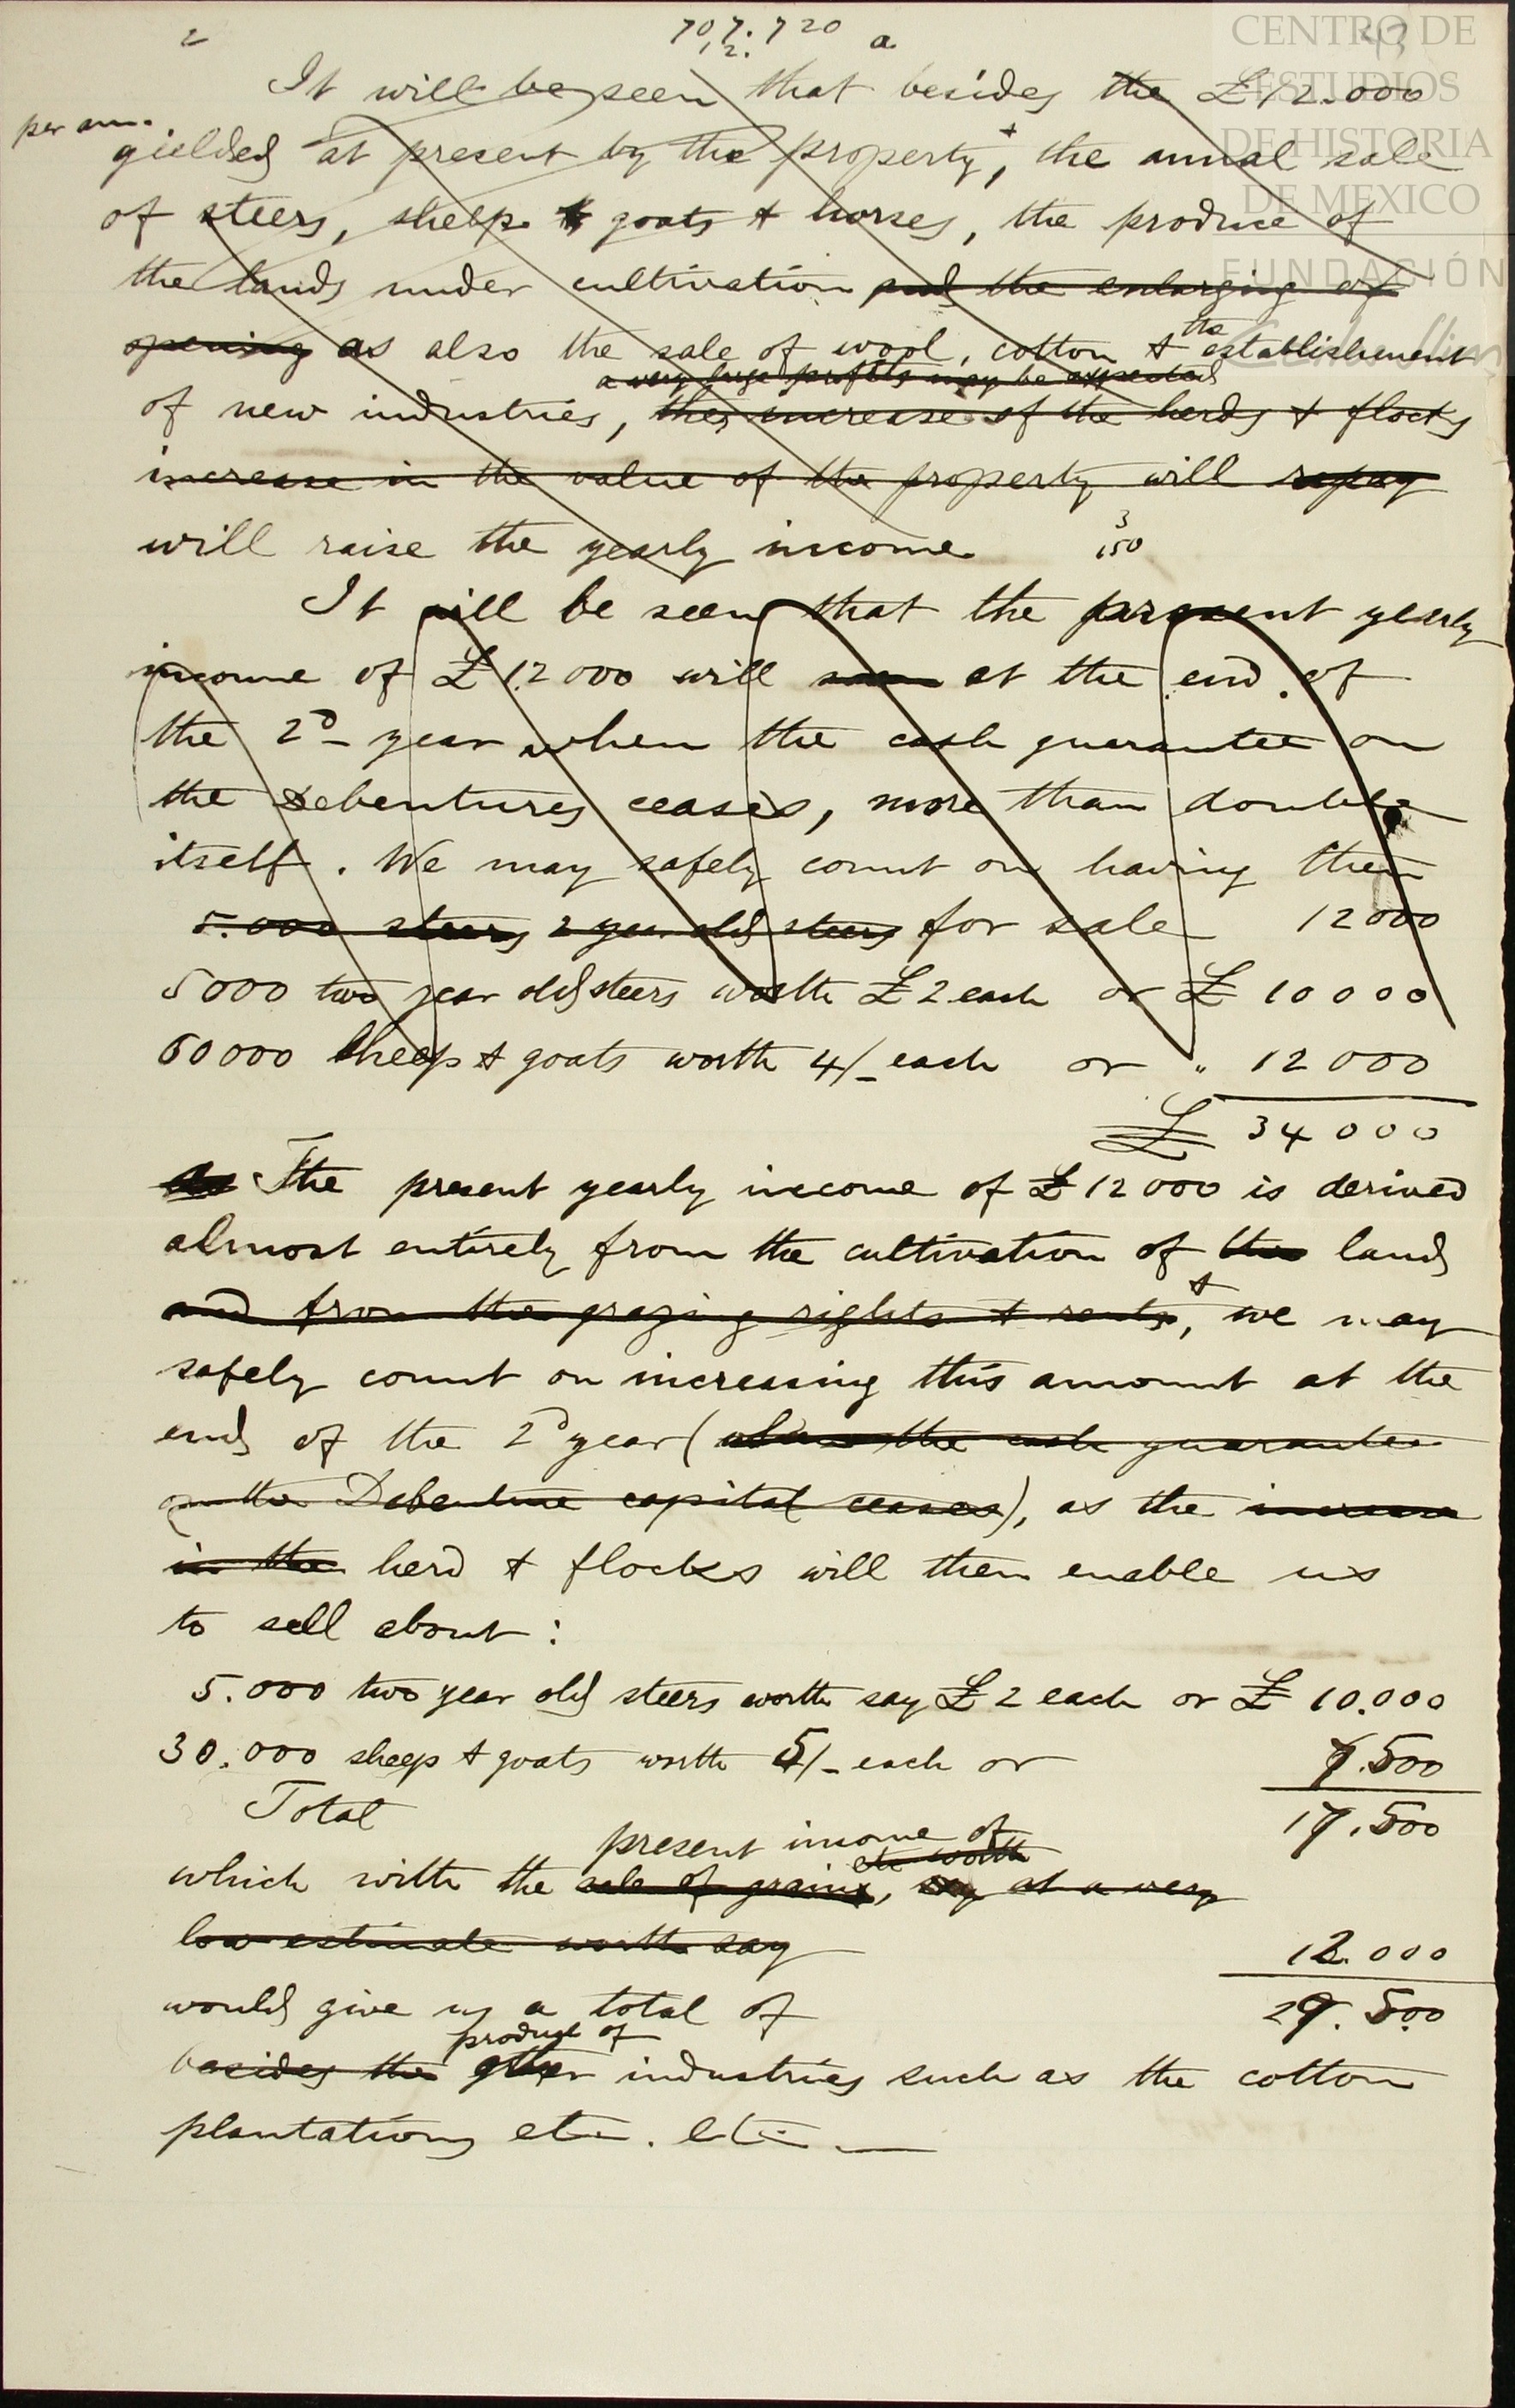 2
707.720 a
12.
CENTRO DE
ESTUDIOS
DE HISTORIA
DE MEXICO
FUNDACIÓN
It will be seen that besides the £12.000
per ann.
yielded at present by the property, the annual sale
of steers, sheep & goats & horses, the produce of
the lands under cultivation and the enlarging of
opening as also the sale of wool, cotton & the establishment
a very large profits may be expected
of new industries, the increase of the herds & flocks
increase in the value of the property will repay
will raise the yearly income
3
150
It will be seen that the present yearly
income of £12000 will at the end of
the 2d year when the cash guarantee on
the Debentures ceases, more than double
itself. We may safely count on having then
5.000 steers 2 year old steers for sale 12000
5000 two year old steers worth £2 each or £ 10000
60000 sheep & goats worth 4/- each or " 12000
£ 34000
The present yearly income of £12000 is derived
almost entirely from the cultivation of the land
and from the grazing rights & rents, & we may
safely count on increasing this amount at the
end of the 2d year (when the cash guarantee
on the Debenture capital ceases), as the increase
in the herd & flocks will then enable us
to sell about:
5.000 two year old steers worth say £2 each or £ 10.000
30.000 sheep & goats worth 5/- each or 7.500
Total 17.500
present income of
etc worth
which with the sale of grains, say at a very
low estimate worth say 12.000
would give us a total of 29.500
produce of
besides the other industries such as the cotton
plantations etc. etc.